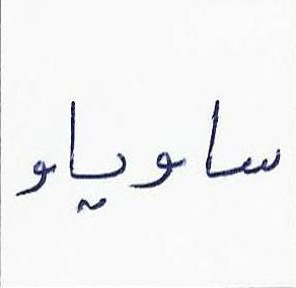 ساویاو